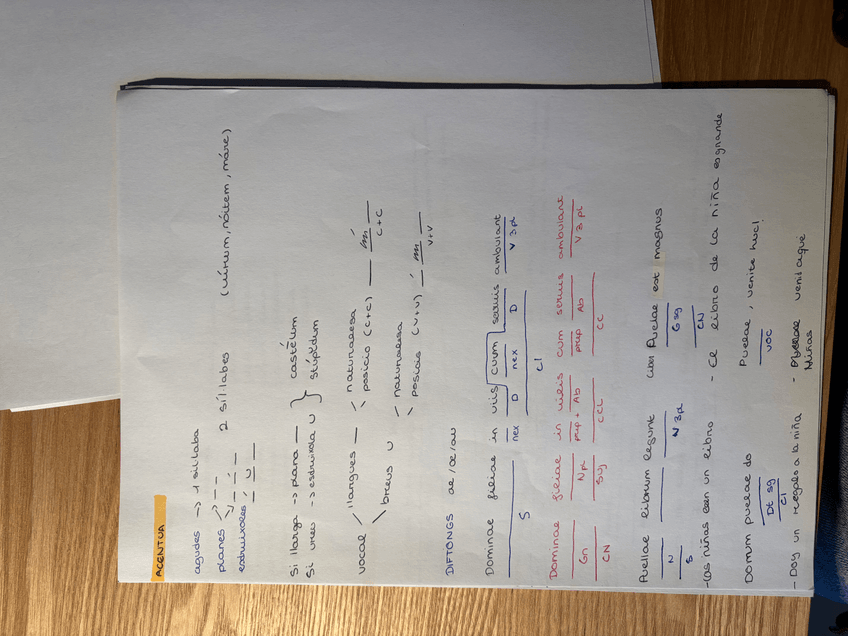 ACENTUA
agudes -> 1 síl·laba
planes 2 síl·labes (vírum, nóitem, máre)
esdruíxoles
Si llarga -> plana — castéum
Si breu -> esdruíxola ∪ stupĭdum
vocal llargues — naturalesa
posició (c+c)
c+c
breus ∪ naturalesa
posició (v+v)
v+v
DIFTONGS ae/oe/au
Dominae filiae in viis cuum servis ambulant
nex D nex D V 3 pl
S CI
Dominae filiae in vieis cum servis ambulant
Gn N pl prep + Ab prep Ab V 3 pl
CN SUJ CCL CC
Puellae librum legunt Puellae est magnus
N N 3pl G sg
S CN
- Las niñas leen un libro - El libro de la niña es grande
Domum puellae do Puellae, venite huc!
Dt sg VOC
CI
- Doy un regalo a la niña - venid aquí
Niñas